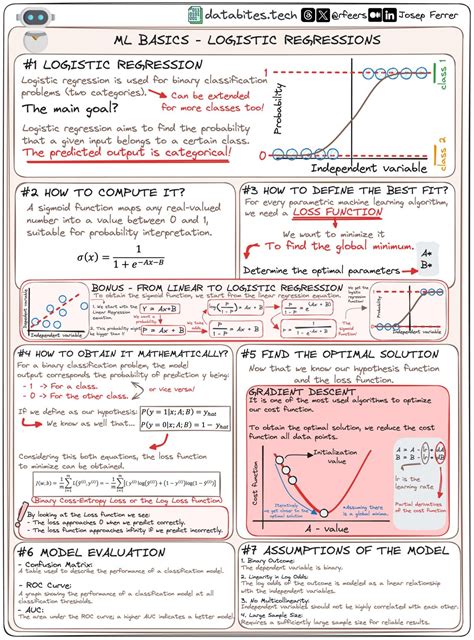 databites.tech @rfeers in Josep Ferrer
ML BASICS - LOGISTIC REGRESSIONS
#1 LOGISTIC REGRESSION
Logistic regression is used for binary classification
problems (two categories).
Can be extended
for more classes too!
The main goal?
Logistic regression aims to find the probability
that a given input belongs to a certain class.
The predicted output is categorical!
1
Probability
0
Independent variable
class 1
class 2
#2 HOW TO COMPUTE IT?
A sigmoid function maps any real-valued
number into a value between 0 and 1,
suitable for probability interpretation.
σ(x) = 1 / (1 + e^(-Ax-B))
#3 HOW TO DEFINE THE BEST FIT?
For every parametric machine learning algorithm,
we need a LOSS FUNCTION
We want to minimize it
To find the global minimum.
Determine the optimal parameters
A*
B*
BONUS - FROM LINEAR TO LOGISTIC REGRESSION
To obtain the sigmoid function, we start from the linear regression equation.
Dependent variable
Independent variable
1. We start with the
Linear Regression
equation.
Y = Ax+B
We want a
probability
P = Ax + B
2. This probability might
be bigger than 1!
We get the
logistic
regression
function!
Probability
Independent variable
#4 HOW TO OBTAIN IT MATHEMATICALLY?
For a binary classification problem, the model
output corresponds the probability of prediction y being:
- 1 → For a class.
- 0 → For the other class.
or vice versa!
If we define as our hypothesis:
P(y = 1|x; A; B) = yhat
We know as well that...
P(y = 0|x; A; B) = 1 - yhat
Considering this both equations, the loss function
to minimize can be obtained.
Binary Cross-Entropy Loss or the Log Loss function
By looking at the Loss function we see:
- The loss approaches 0 when we predict correctly.
- The loss function approaches infinity if we predict incorrectly.
#5 FIND THE OPTIMAL SOLUTION
Now that we know our hypothesis function
and the loss function.
GRADIENT DESCENT
It is one of the most used algorithms to optimize
our cost function.
To obtain the optimal solution, we reduce the cost
function all data points.
Initialization
value
Cost function
Iteratively
get closer to the
optimal solution
Assuming there
is a global minima.
A - value
A = A - lr * dA
B = B - lr * dB
lr is
the learning
rate
Partial derivatives
of the cost function
#6 MODEL EVALUATION
- Confusion Matrix:
A table used to describe the performance of a classification model.
- ROC Curve:
A graph showing the performance of a classification model at all
classification thresholds.
- AUC:
The area under the ROC curve; a higher AUC indicates a better model.
#7 ASSUMPTIONS OF THE MODEL
1. Binary Outcome:
The dependent variable is binary.
2. Linearity in Log Odds:
The log odds of the outcome is modeled as a linear relationship
with the independent variables.
3. No Multicollinearity:
Independent variables should not be highly correlated with each other.
4. Large Sample Size:
Requires a sufficiently large sample size for reliable results.